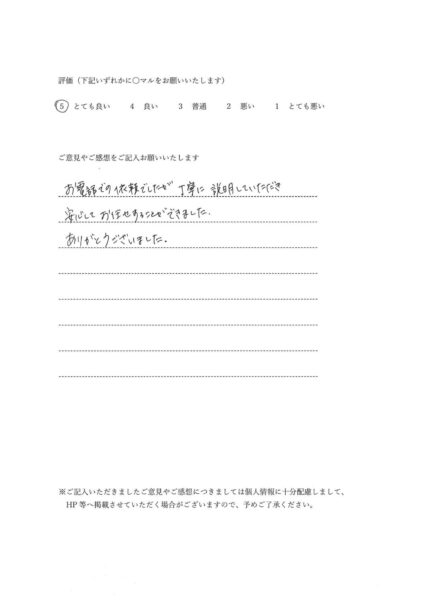 評価（下記いずれかに○マルをお願いいたします）
5 とても良い 4 良い 3 普通 2 悪い 1 とても悪い
ご意見やご感想をご記入お願いいたします
お電話での依頼でしたが 丁寧に 説明していただき
安心して お任せすることができました.
ありがとうございました.
※ご記入いただきましたご意見やご感想につきましては個人情報に十分配慮しまして、
HP 等へ掲載させていただく場合がございますので、予めご了承ください。